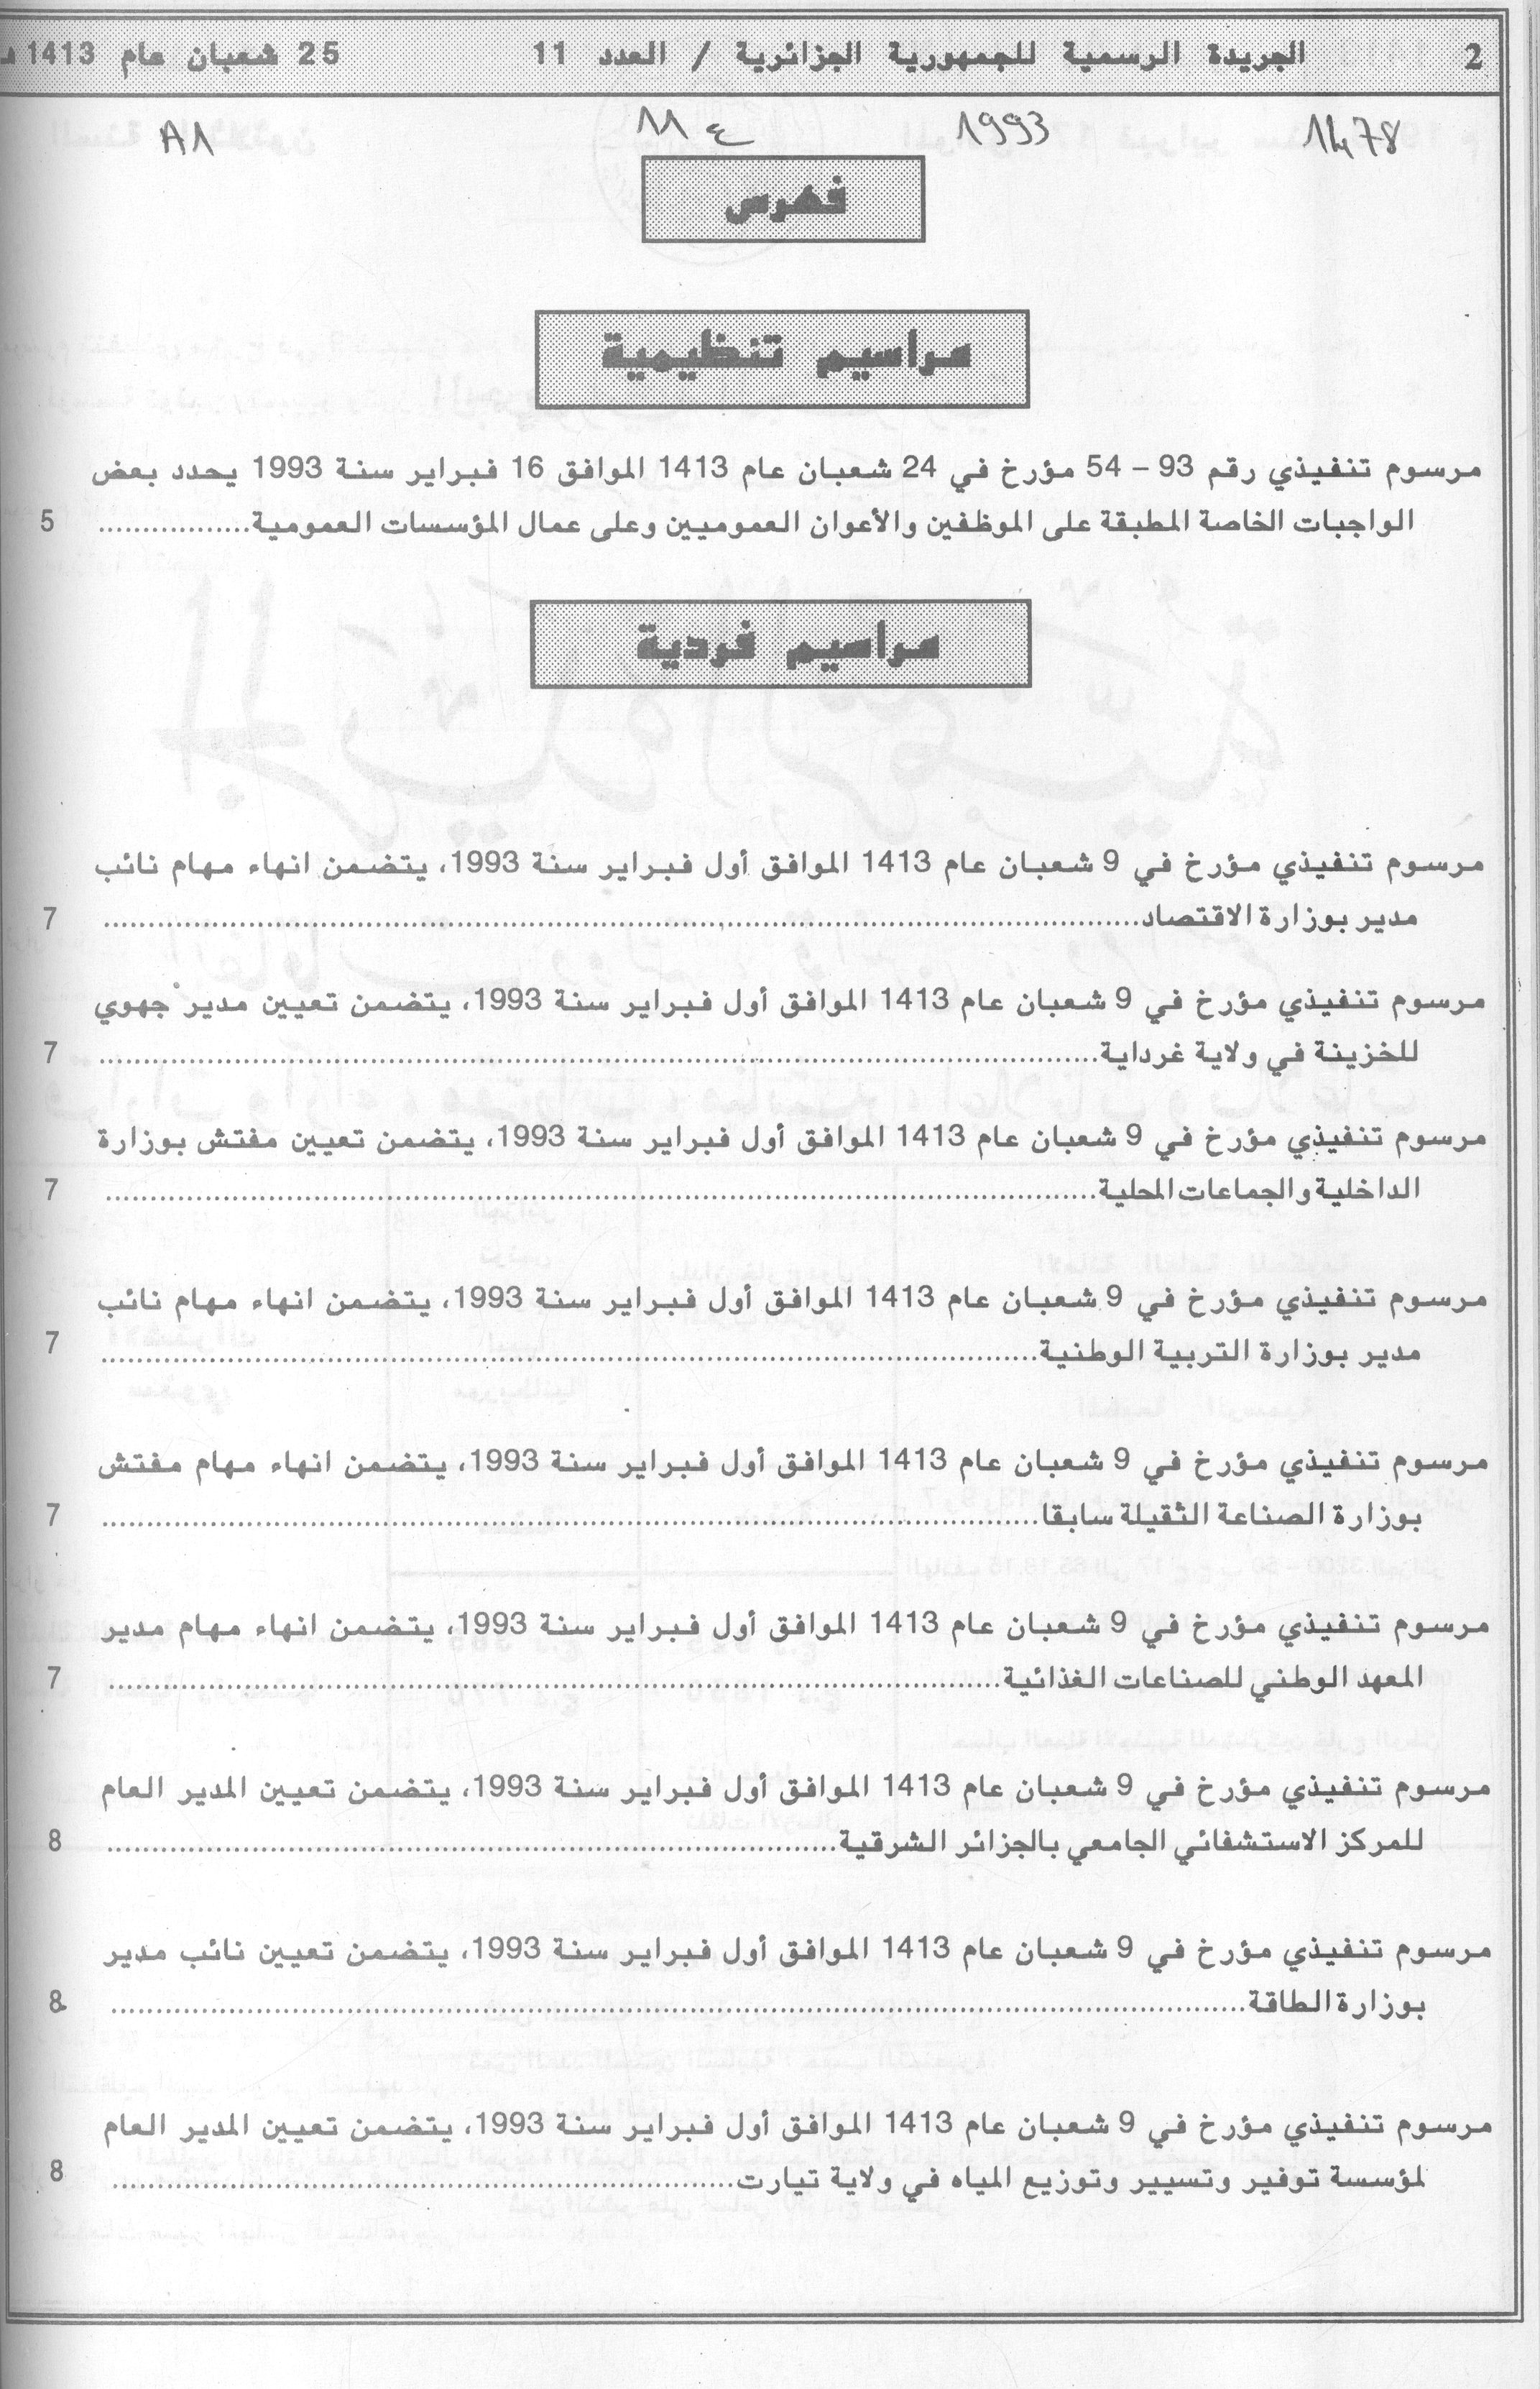 2 الجريدة الرسمية للجمهورية الجزائرية / العدد 11 25 شعبان عام 1413
1478 1993 ع 11 A1
فهرس
مراسيم تنظيمية
مرسوم تنفيذي رقم 93 – 54 مؤرخ في 24 شعبان عام 1413 الموافق 16 فبراير سنة 1993 يحدد بعض
الواجبات الخاصة المطبقة على الموظفين والأعوان العموميين وعلى عمال المؤسسات العمومية................. 5
مراسيم فردية
مرسوم تنفيذي مؤرخ في 9 شعبان عام 1413 الموافق أول فبراير سنة 1993، يتضمن انهاء مهام نائب
مدير بوزارة الاقتصاد................. 7
مرسوم تنفيذي مؤرخ في 9 شعبان عام 1413 الموافق أول فبراير سنة 1993، يتضمن تعيين مدير جهوي
للخزينة في ولاية غرداية................. 7
مرسوم تنفيذي مؤرخ في 9 شعبان عام 1413 الموافق أول فبراير سنة 1993، يتضمن تعيين مفتش بوزارة
الداخلية والجماعات المحلية................. 7
مرسوم تنفيذي مؤرخ في 9 شعبان عام 1413 الموافق أول فبراير سنة 1993، يتضمن انهاء مهام نائب
مدير بوزارة التربية الوطنية................. 7
مرسوم تنفيذي مؤرخ في 9 شعبان عام 1413 الموافق أول فبراير سنة 1993، يتضمن انهاء مهام مفتش
بوزارة الصناعة الثقيلة سابقا................. 7
مرسوم تنفيذي مؤرخ في 9 شعبان عام 1413 الموافق أول فبراير سنة 1993، يتضمن انهاء مهام مدير
المعهد الوطني للصناعات الغذائية................. 7
مرسوم تنفيذي مؤرخ في 9 شعبان عام 1413 الموافق أول فبراير سنة 1993، يتضمن تعيين المدير العام
للمركز الاستشفائي الجامعي بالجزائر الشرقية................. 8
مرسوم تنفيذي مؤرخ في 9 شعبان عام 1413 الموافق أول فبراير سنة 1993، يتضمن تعيين نائب مدير
بوزارة الطاقة................. 8
مرسوم تنفيذي مؤرخ في 9 شعبان عام 1413 الموافق أول فبراير سنة 1993، يتضمن تعيين المدير العام
لمؤسسة توفير وتسيير وتوزيع المياه في ولاية تيارت................. 8